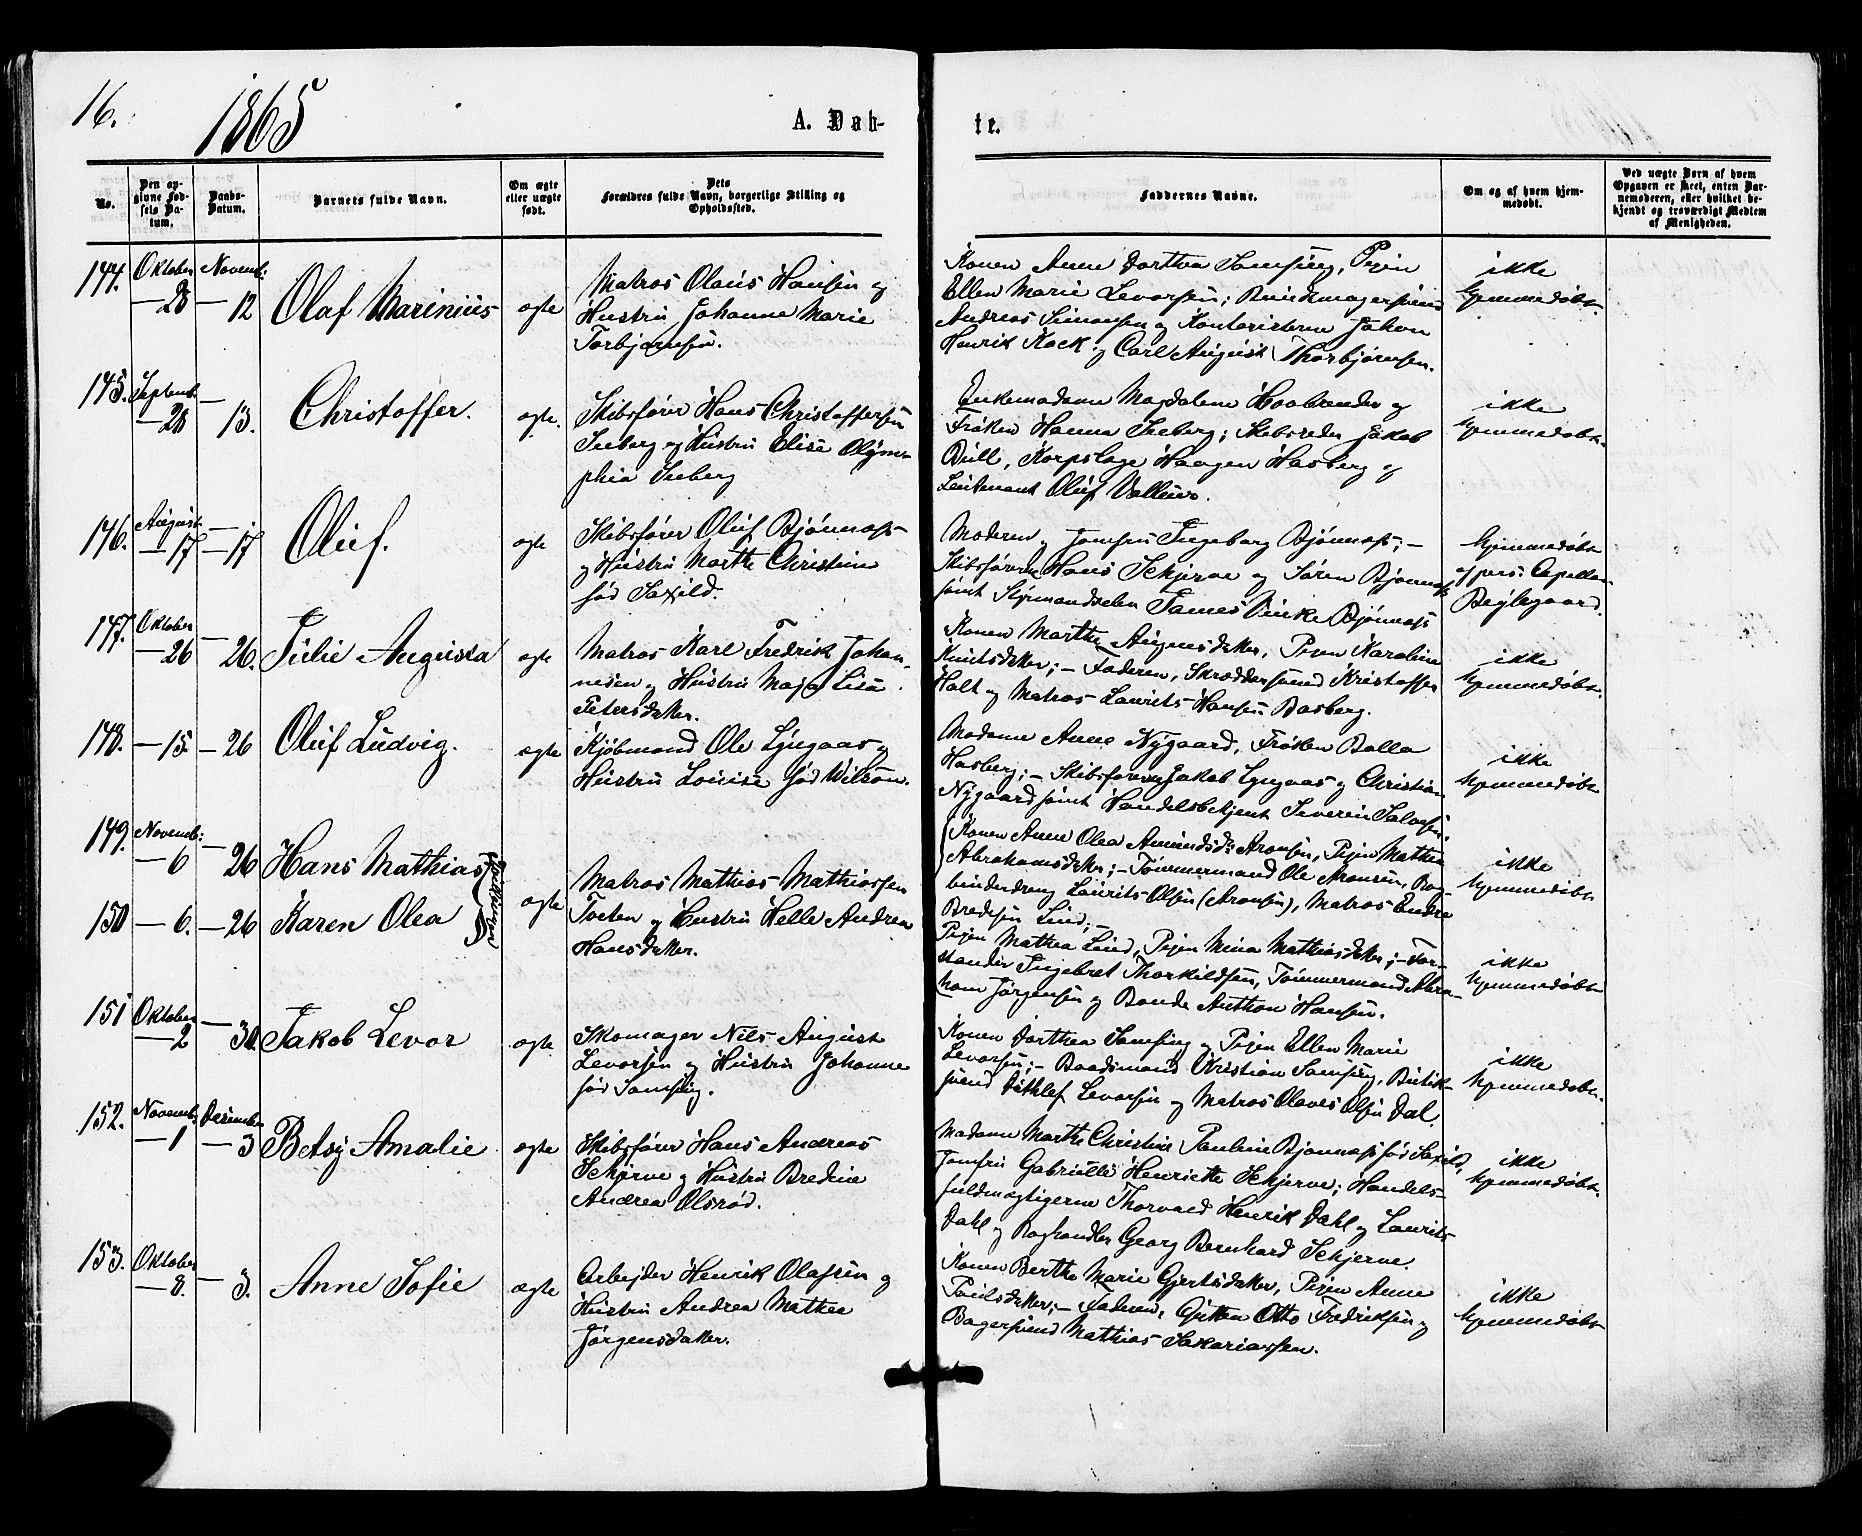 16.
1865
A. Døb-
te.
No.
Den opgivne Fødsels Datum.
Daabs-Datum.
Barnets fulde Navn.
Om ægte eller uægte født.
Dets Forældres fulde Navn, borgerlige Stilling og Opholdssted.
Faddernes Navne.
Om og af hvem hjemmedøbt.
Ved uægte Børn af hvem Opgaven er skeet, enten Barnemoderen, eller hvilket bekjendt og troværdigt Medlem af Menigheden.
144. Oktober 28 Novemb: 12 Olaf Marinius ægte
Matros Olaus Hansen og
Hustru Johanne Marie
Torbjørnsen.
Konen Anne Dorthea Samsing, Pigen
Ellen Marie Levorsen; Bundtmagersvend
Andreas Simonsen og Kontoristerne Johan
Henrik Kock og Carl August Thorbjørnsen.
ikke
hjemmedøbt.
145. Septemb. 28 — 13. Christoffer. ægte.
Skibsfører Hans Christoffersen
Seeberg og Hustru Elise Olym-
phia Seeberg
Enkemadame Magdalene
Frøken Hanna Seeberg; Skibsreder Jakob
Bull, Korpslæge Haagen Hasberg og
Leutenant Oluf
ikke
hjemmedøbt.
146. August 17 — 17 Oluf. ægte
Skibsfører Oluf Bjønnæss
og Hustru Marthe Christine
fød Saxild.
Moderen og Jomfru Ingeborg Bjønnæss; —
Skibsførerne Hans Schjerve og Søren Bjønnæss
samt Styrmandselev James Bjønnæss
hjemmedøbt
af pers: Capellan
Bejlegaard.
147. Oktober 26 — 26. Julie Augusta ægte
Matros Karl Fredrik Johan-
nesen og Hustru Maja Lisa
Petersdatter.
Konen Marthe Pigen Karoline
Knutsdatter; — Faderen, Skræddersvend Kristoffer
Holt og Matros Laurits Hansen Basberg.
ikke
hjemmedøbt.
148. — 15. — 26 Oluf Ludvig. ægte
Kjøbmand Ole Lyngaas og
Hustru Louise fød Wilson.
Madame Anne Nygaard, Frøken Balla
Hasberg; — Skibsførerne Jakob Lyngaas og Christian
Nygaard samt Handelsbetjent Severin Salvesen.
ikke
hjemmedøbt
149. Novemb: 6 — 26 Hans Mathias
150 — 6. — 26 Karen Olea
(Tvillinger)
ægte
Matros Mathias Mathiassen
Toeten og Hustru Helle Andrea
Hansdatter.
Konen Anne Olea Amundsd: Aronsen, Pigen Mathea
Abrahamsdatter; — Tømmermand Ole Aronsen, Bog-
binderdreng Laurits Olsen (Aronsen), Matros Endre
Bredesen Lind; —
Pigen Mathea Lind, Pigen Mina Mathiasdatter; — For-
stander Ingebret Thorkildsen, Tømmermand Abra-
ham Jørgensen og Bonde Anthon Hansen.
ikke
hjemmedøbt
ikke
hjemmedøbt
151 Oktober 2 — 30. Jakob Levor ægte
Skomager Nils August
Levorsen og Hustru Johanne
fød Samsing.
Konen Dorthea Samsing og Pigen Ellen Marie
Levorsen; — Baadsmand Kristian Samsing, Butik-
svend Ditlef Levorsen og Matros Olaves Olsen Dal.
ikke
hjemmedøbt.
152. Novemb: 1 December 3 Betsy Amalie ægte
Skibsfører Hans Andreas
Schjerve og Hustru Bredine
Andrea Olsrød.
Madame Marthe Christine Pauline Bjønnæss fød Saxild,
Jomfru Gabrielle Henriette Schjerve; Handels-
fuldmægtigerne Thorvald Henrik Dahl og Laurits
Dahl og Boghandler Georg Bernhard Schjerve.
ikke
hjemmedøbt.
153. Oktober 8. — 3. Anne Sofie ægte
Arbejder Henrik Olafsen og
Hustru Andrea Mathea
Jørgensdatter.
Konen Berthe Marie Gjertsdatter, Pigen Anne
Poulsdatter; — Faderen, Gutten Otto Fredriksen og
Bagersvend Mathias Sakariassen.
ikke
hjemmedøbt